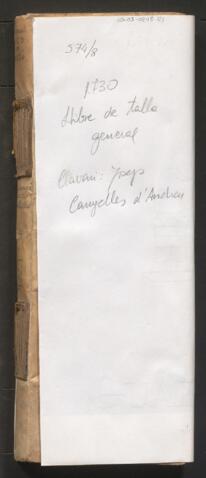 574/8
1730
Llibre de talla
general
Clavari: Josep
Canyelles d'Andreu